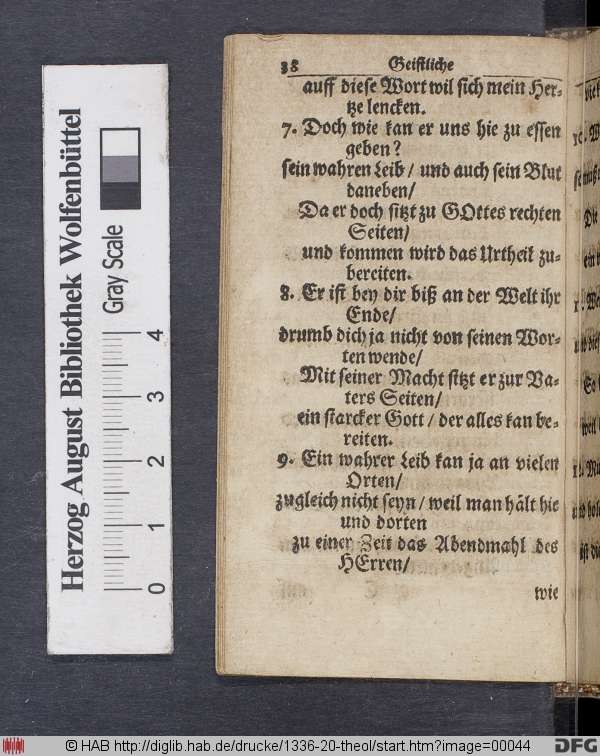 38 Geistliche
auff diese Wort wil sich mein Her-
tze lencken.
7. Doch wie kan er uns hie zu essen
geben?
sein wahren Leib / und auch sein Blut
daneben/
Da er doch sitzt zu GOttes rechten
Seiten/
und kommen wird das Urtheil zu-
bereiten.
8. Er ist bey dir biß an der Welt ihr
Ende/
drumb dich ja nicht von seinen Wor-
ten wende/
Mit seiner Macht sitzt er zur Va-
ters Seiten/
ein starcker Gott / der alles kan be-
reiten.
9. Ein wahrer Leib kan ja an vielen
Orten/
zugleich nicht seyn / weil man hält hie
und dorten
zu einer Zeit das Abendmahl des
HErren/
wie
Herzog August Bibliothek Wolfenbüttel
Gray Scale
0 1 2 3 4
© HAB http://diglib.hab.de/drucke/1336-20-theol/start.htm?image=00044
DFG